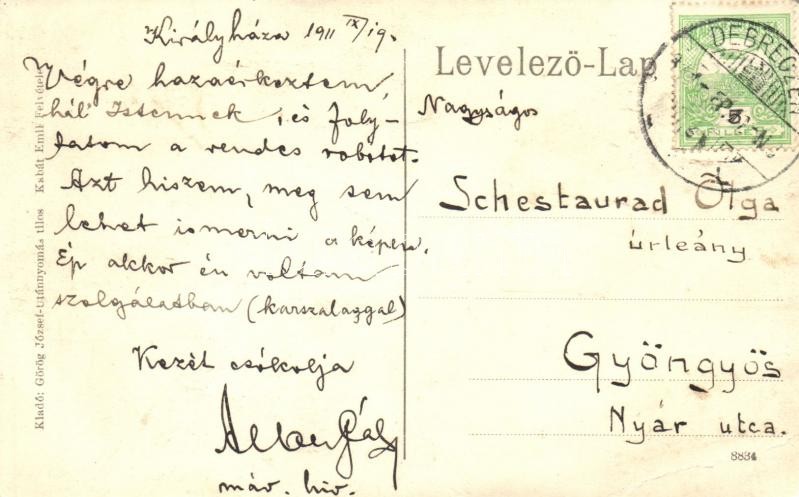 Királyháza 1911 IX/19.
Végre hazaérkeztem,
hál' Istennek, és foly-
tatom a rendes robotot.
Azt hiszem, meg sem
lehet ismerni a képen.
Ép akkor én voltam
szolgálatban (karszalaggal)
Kezét csókolja
Gál
máv. hiv.
Kiadó: Görög József-utánnyomás tilos Kabát Emil Felvétele
Levelező-Lap
Nagyságos
Schestaurad Olga
úrleány
Gyöngyös
Nyár utca.
8834
DEBRECZEN